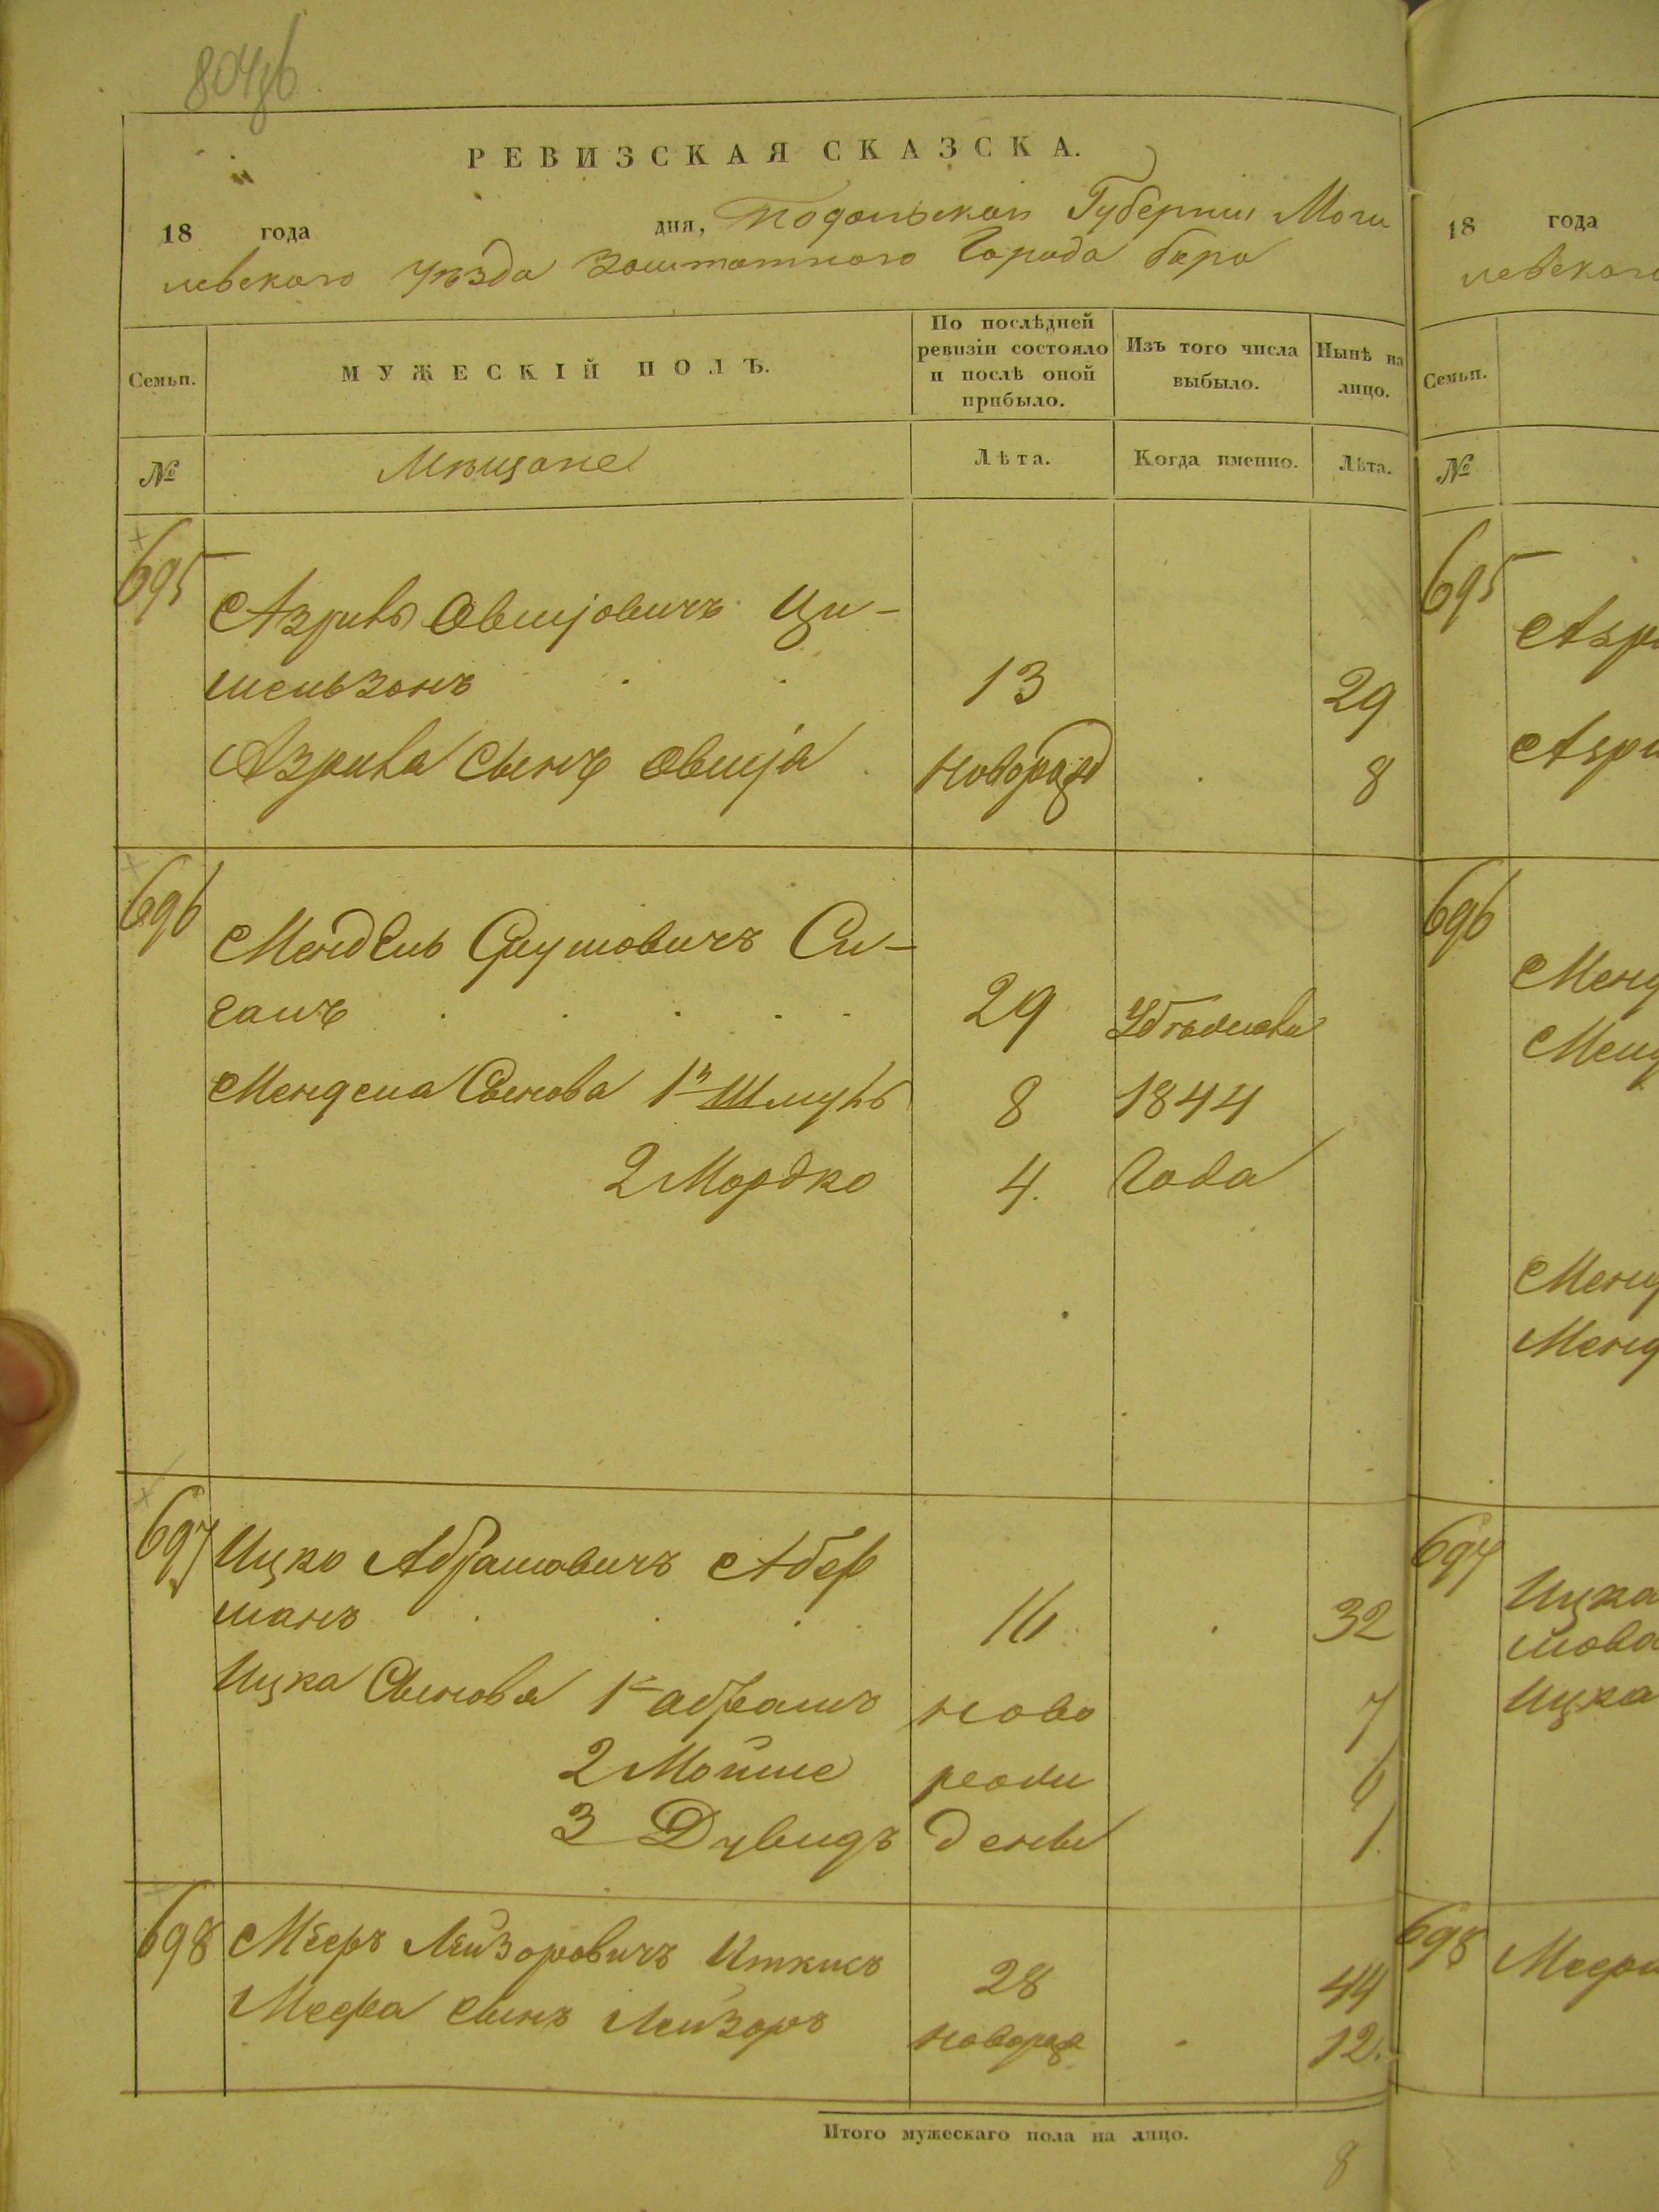 804 об
РЕВИЗСКАЯ СКАЗСКА.
18 года дня, Подольской Губерніи Моги
левского Уѣзда Заштатного Города бара
Семьи.
МУЖЕСКІЙ ПОЛЪ.
По послѣдней ревизіи состояло и послѣ оной прибыло.
Изъ того числа выбыло.
Нынѣ на лицо.
№
Мѣщане
Лѣта.
Когда именно.
Лѣта.
695
Азриль Овшіовичъ Ци-
мельзонъ 13 29
Азрила Сынъ Овшіа новорожд 8
696
Мендель Сруловичъ Си-
галъ 29
Мендела Сынова 1й Шмуль 8 1844
2 Мордко 4. Года
697
Ицко Абрамовичъ Абер
манъ 16 32
Ицка Сынова 1й абрамъ ново 7
2 Мойше рожи 6
3 Дувидъ дены 1
698
Мееръ Лейзоровичъ Иткисъ 28 44
Меера сынъ Лейзоръ новорож 12.
Итого мужескаго пола на лицо.
8
18 года
левского
Семьи.
№
695
696
697
Ицка
мова
Ицка
698